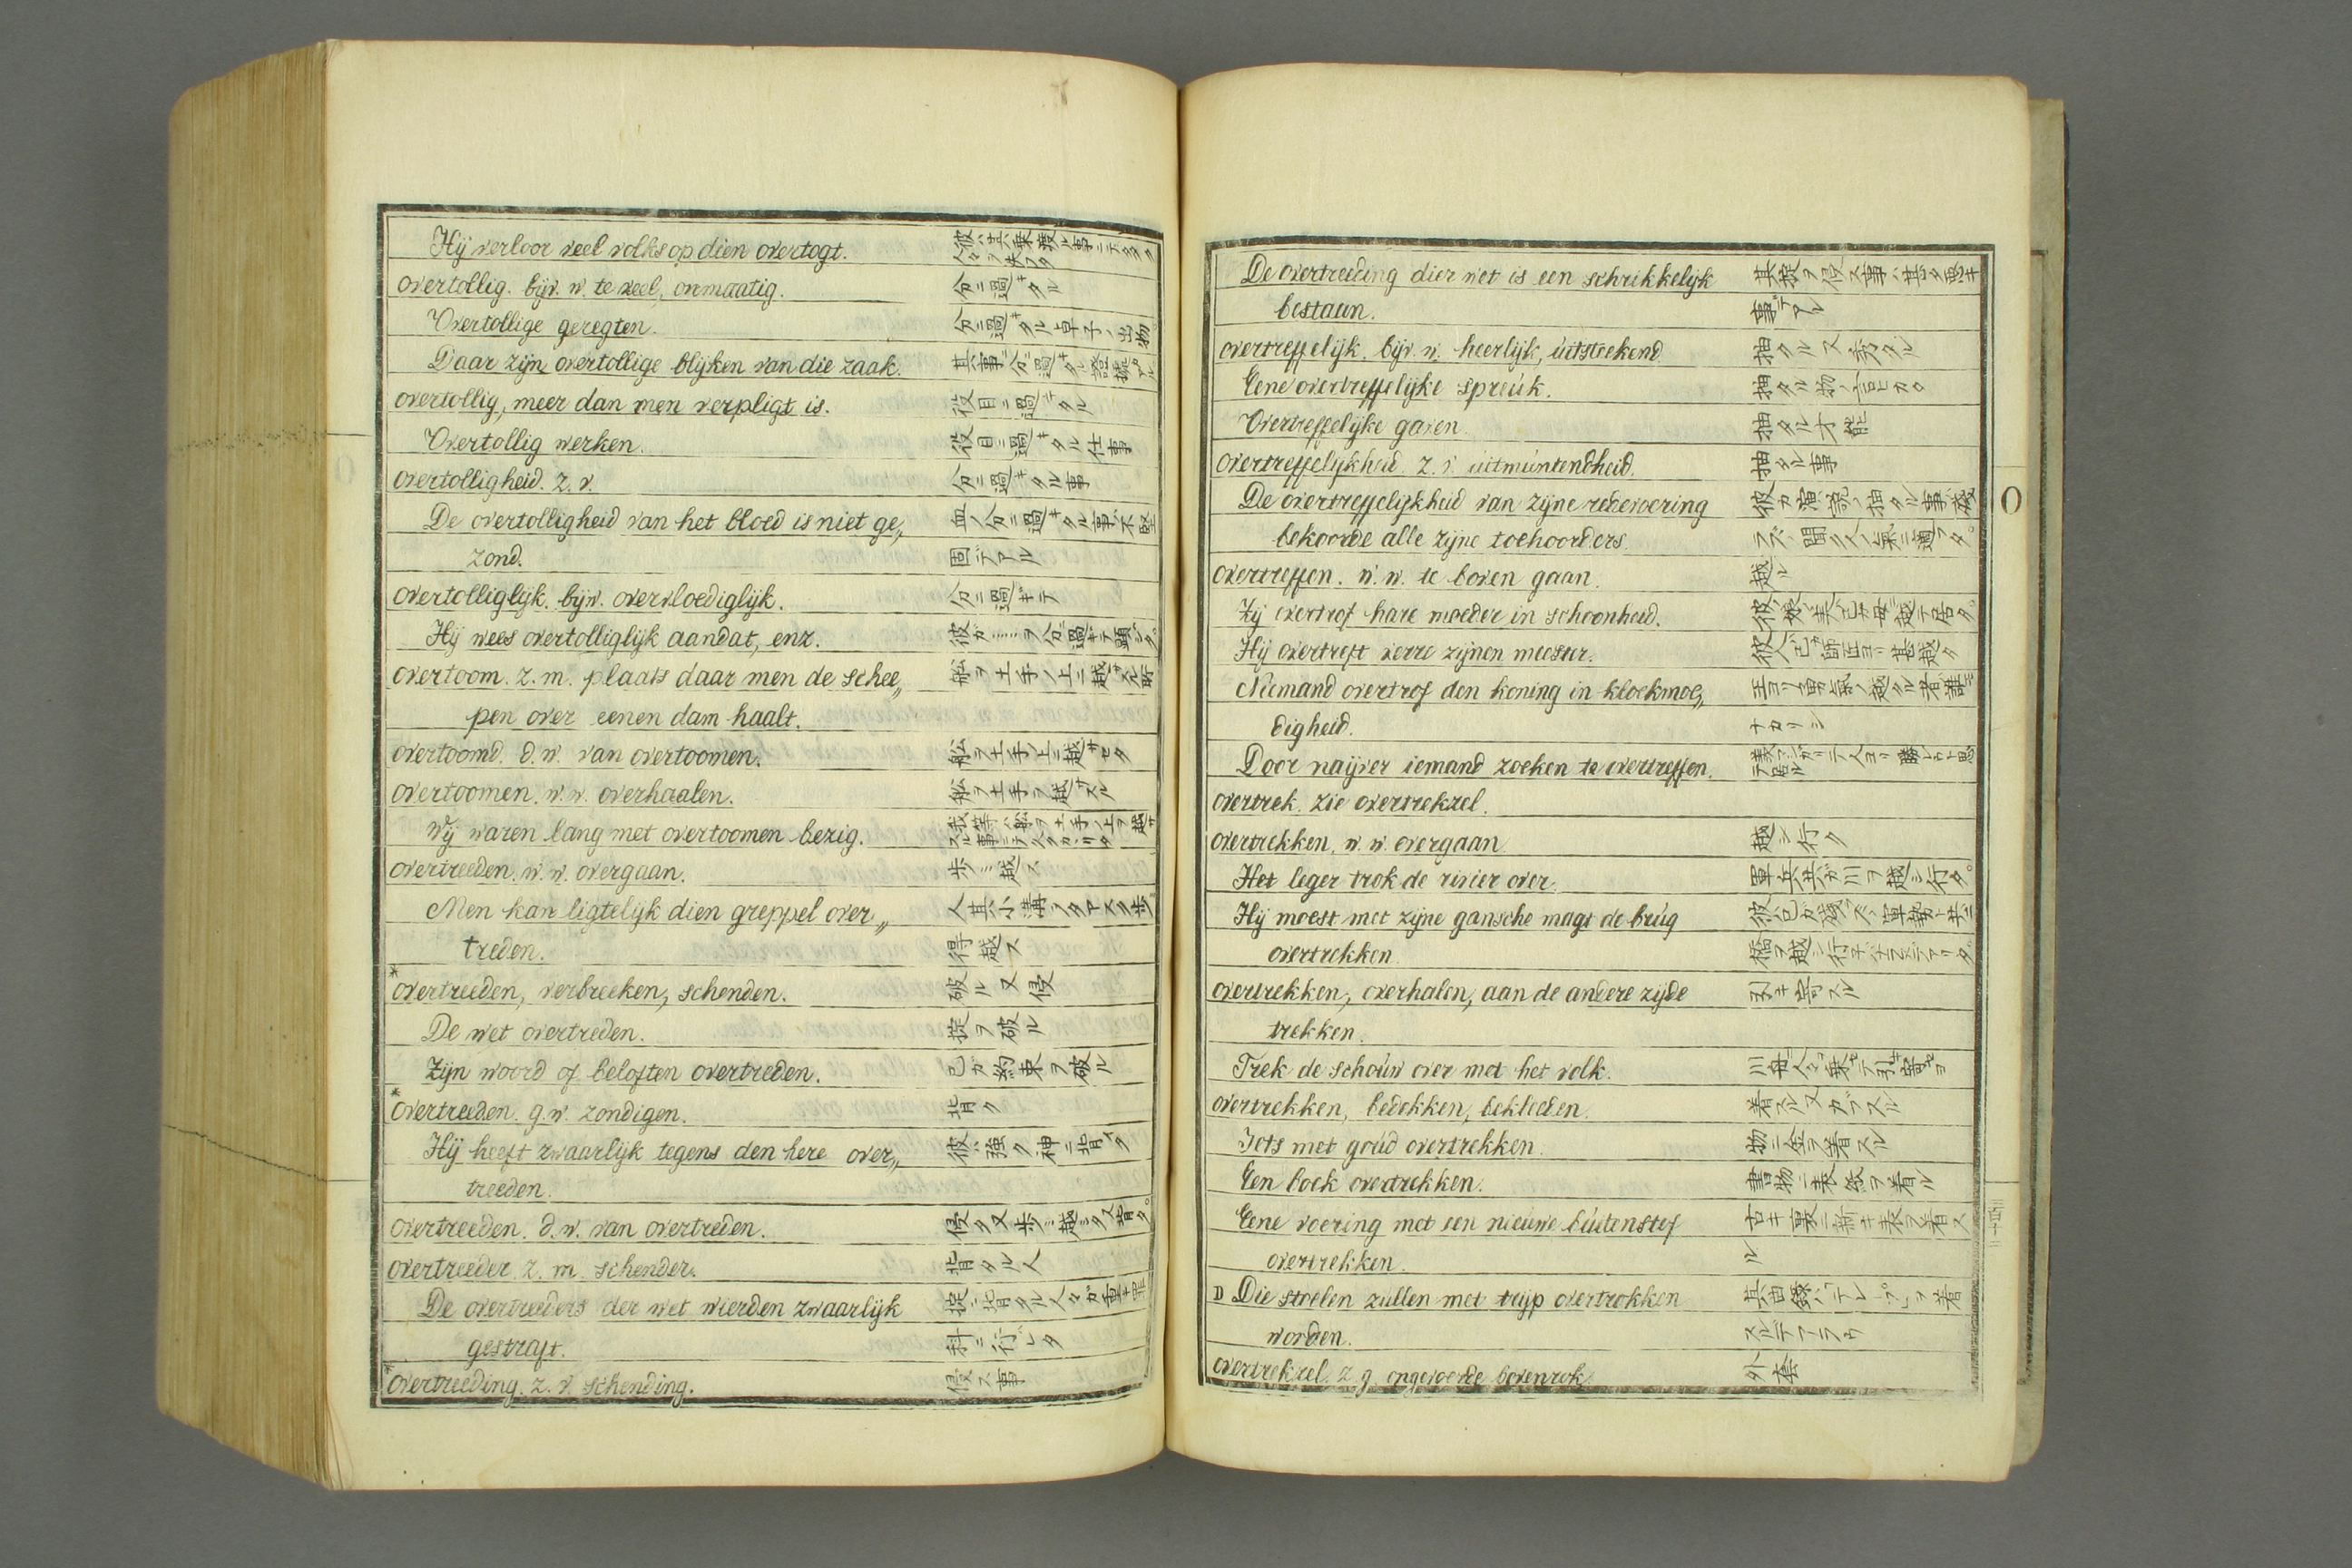 Hij verloor veel volks op dien overtogt. 彼ハ其乗渡ル事ニテ多ク
人ヲ失フタ
overtollig. bijv. w. te veel, onmaatig. 分ニ過キタル
Overtollige geregten. 分ニ過キタル卓子ノ出物
Daar zijn overtollige blijken van die zaak. 其事ニ分ニ過キタル證據アル
overtollig, meer dan men verpligt is. 役目ニ過キタル
Overtollig werken. 役目ニ過キタル仕事
overtolligheid. z. v. 分ニ過キタル事
De overtolligheid van het bloed is niet ge„ 血ノ分ニ過キタル事ハ不堅
zond. 固デアル
overtolliglijk. bijw. overvloediglijk. 分ニ過ギテ
Hij wees overtolliglijk aan dat, enz. 彼ガ……ヲ分ニ過ギテ顕シタ
overtoom. z. m. plaats daar men de schee„ 舩ヲ土手ノ上ニ越サスル所
pen over eenen dam haalt.
overtoomd. d. w. van overtoomen. 舩ヲ土手ノ上ニ越サセタ
overtoomen. w. w. overhaalen. 舩ヲ土手ヲ越サスル
Wij waren lang met overtoomen bezig. 我等ハ舩ヲ土手ノ上ヲ越サ
スル事ニテ久クカヽリタ
overtreeden. w. w. overgaan. 歩ミ越ス
Men kan ligtelijk dien greppel over„ 人其小溝ヲタヤスク歩
treden. 得越ス
*overtreeden, verbreeken, schenden. 破ル又侵
De wet overtreden. 掟ヲ破ル
Zijn woord of beloften overtreden. 己ガ約束ヲ破ル
*overtreeden. g. w. zondigen. 背ク
Hij heeft zwaarlijk tegens den here over„ 彼ハ強ク神ニ背イタ
treeden.
overtreeden. d. w. van overtreden. 侵タ又歩ミ越シタ又背タ。
overtreeder. z. m. schender. 背タル人
De overtreeders der wet wierden zwaarlijk 掟ニ背タル人々ガ重キ罪
gestraft. 科ニ行ハレタ
*overtreeding. z. v. schending. 侵ス事
De overtreeding dier wet is een schrikkelijk 其掟ヲ侵ス事ハ甚タ悪キ
bestaan. 事デアル
overtreffelijk. bijv. w. heerlijk, uitsteekend. 抽タル又秀タル
Eene overtreffelijke spreuk. 抽タル物ノ言ヒカタ
Overtreffelijke gaven. 抽タル才能
overtreffelijkheid. z. v. uitmuntendheid. 抽タル事
De overtreffelijkheid van zijne redevoering
bekoorde alle zijne toehoorders.
overtreffen. w. w. te boven gaan. 越ル
Zij overtrof hare moeder in schoonheid.
Hij overtreft verre zijnen meester.
Niemand overtrof den koning in kloekmoe„ 王ヨリ勇氣ノ越タル者誰モ
digheid. ナカリシ
Door naijver iemand zoeken te overtreffen.
overtrek. zie overtrekzel.
overtrekken. w. w. overgaan 越シ行ク
Het leger trok de rivier over. 軍兵共ガ川ヲ越シ行タ。
Hij moest met zijne gansche magt de brug
overtrekken
overtrekken, overhalen, aan de andere zijde 引キ寄スル
trekken.
Trek de schouw over met het volk.
overtrekken, bedekken, bekleeden. 着スル又カブスル
Iets met goud overtrekken. 物ニ金ヲ着スル
Een boek overtrekken. 書物ニ表紙ヲ着ル
Eene voering met een nieuwe buitenstof 古キ裏ニ新キ表ヲ着ス
overtrekken. ル
D Die stoelen zullen met trijp overtrokken
worden. スルデアラウ
overtrekzel. z. g. ongevoerde bovenrok 外套
O